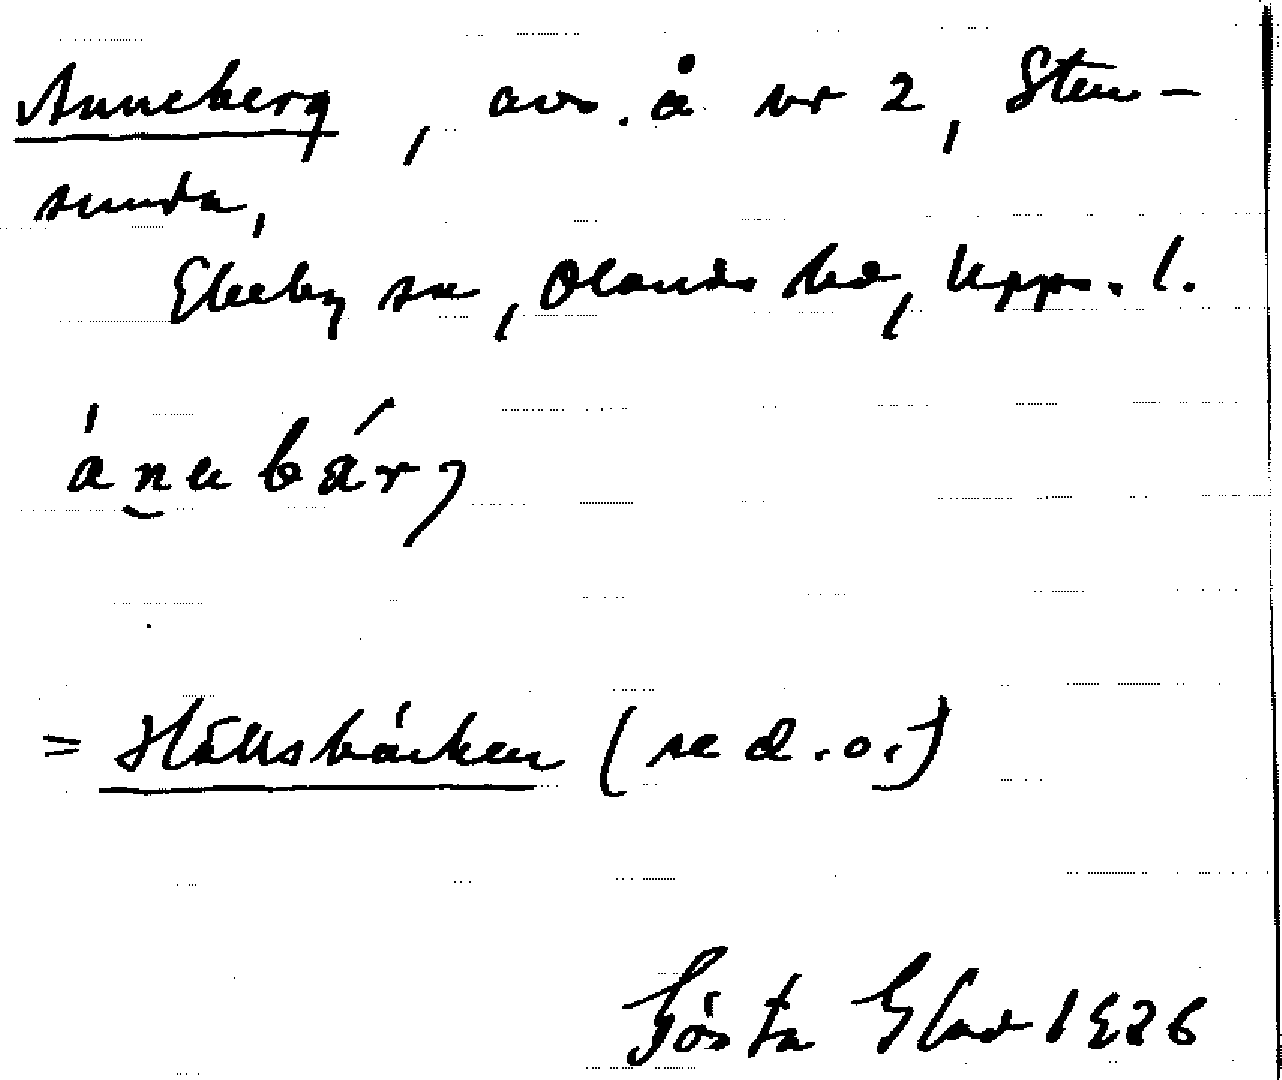 Anneberg, avs. å nr 2, Sten-
sunda,
Ekeby sn, Olands hd, Upps. l.
ánabár
= Hällsbäcken (se d. o.)
Gösta Elad 1926